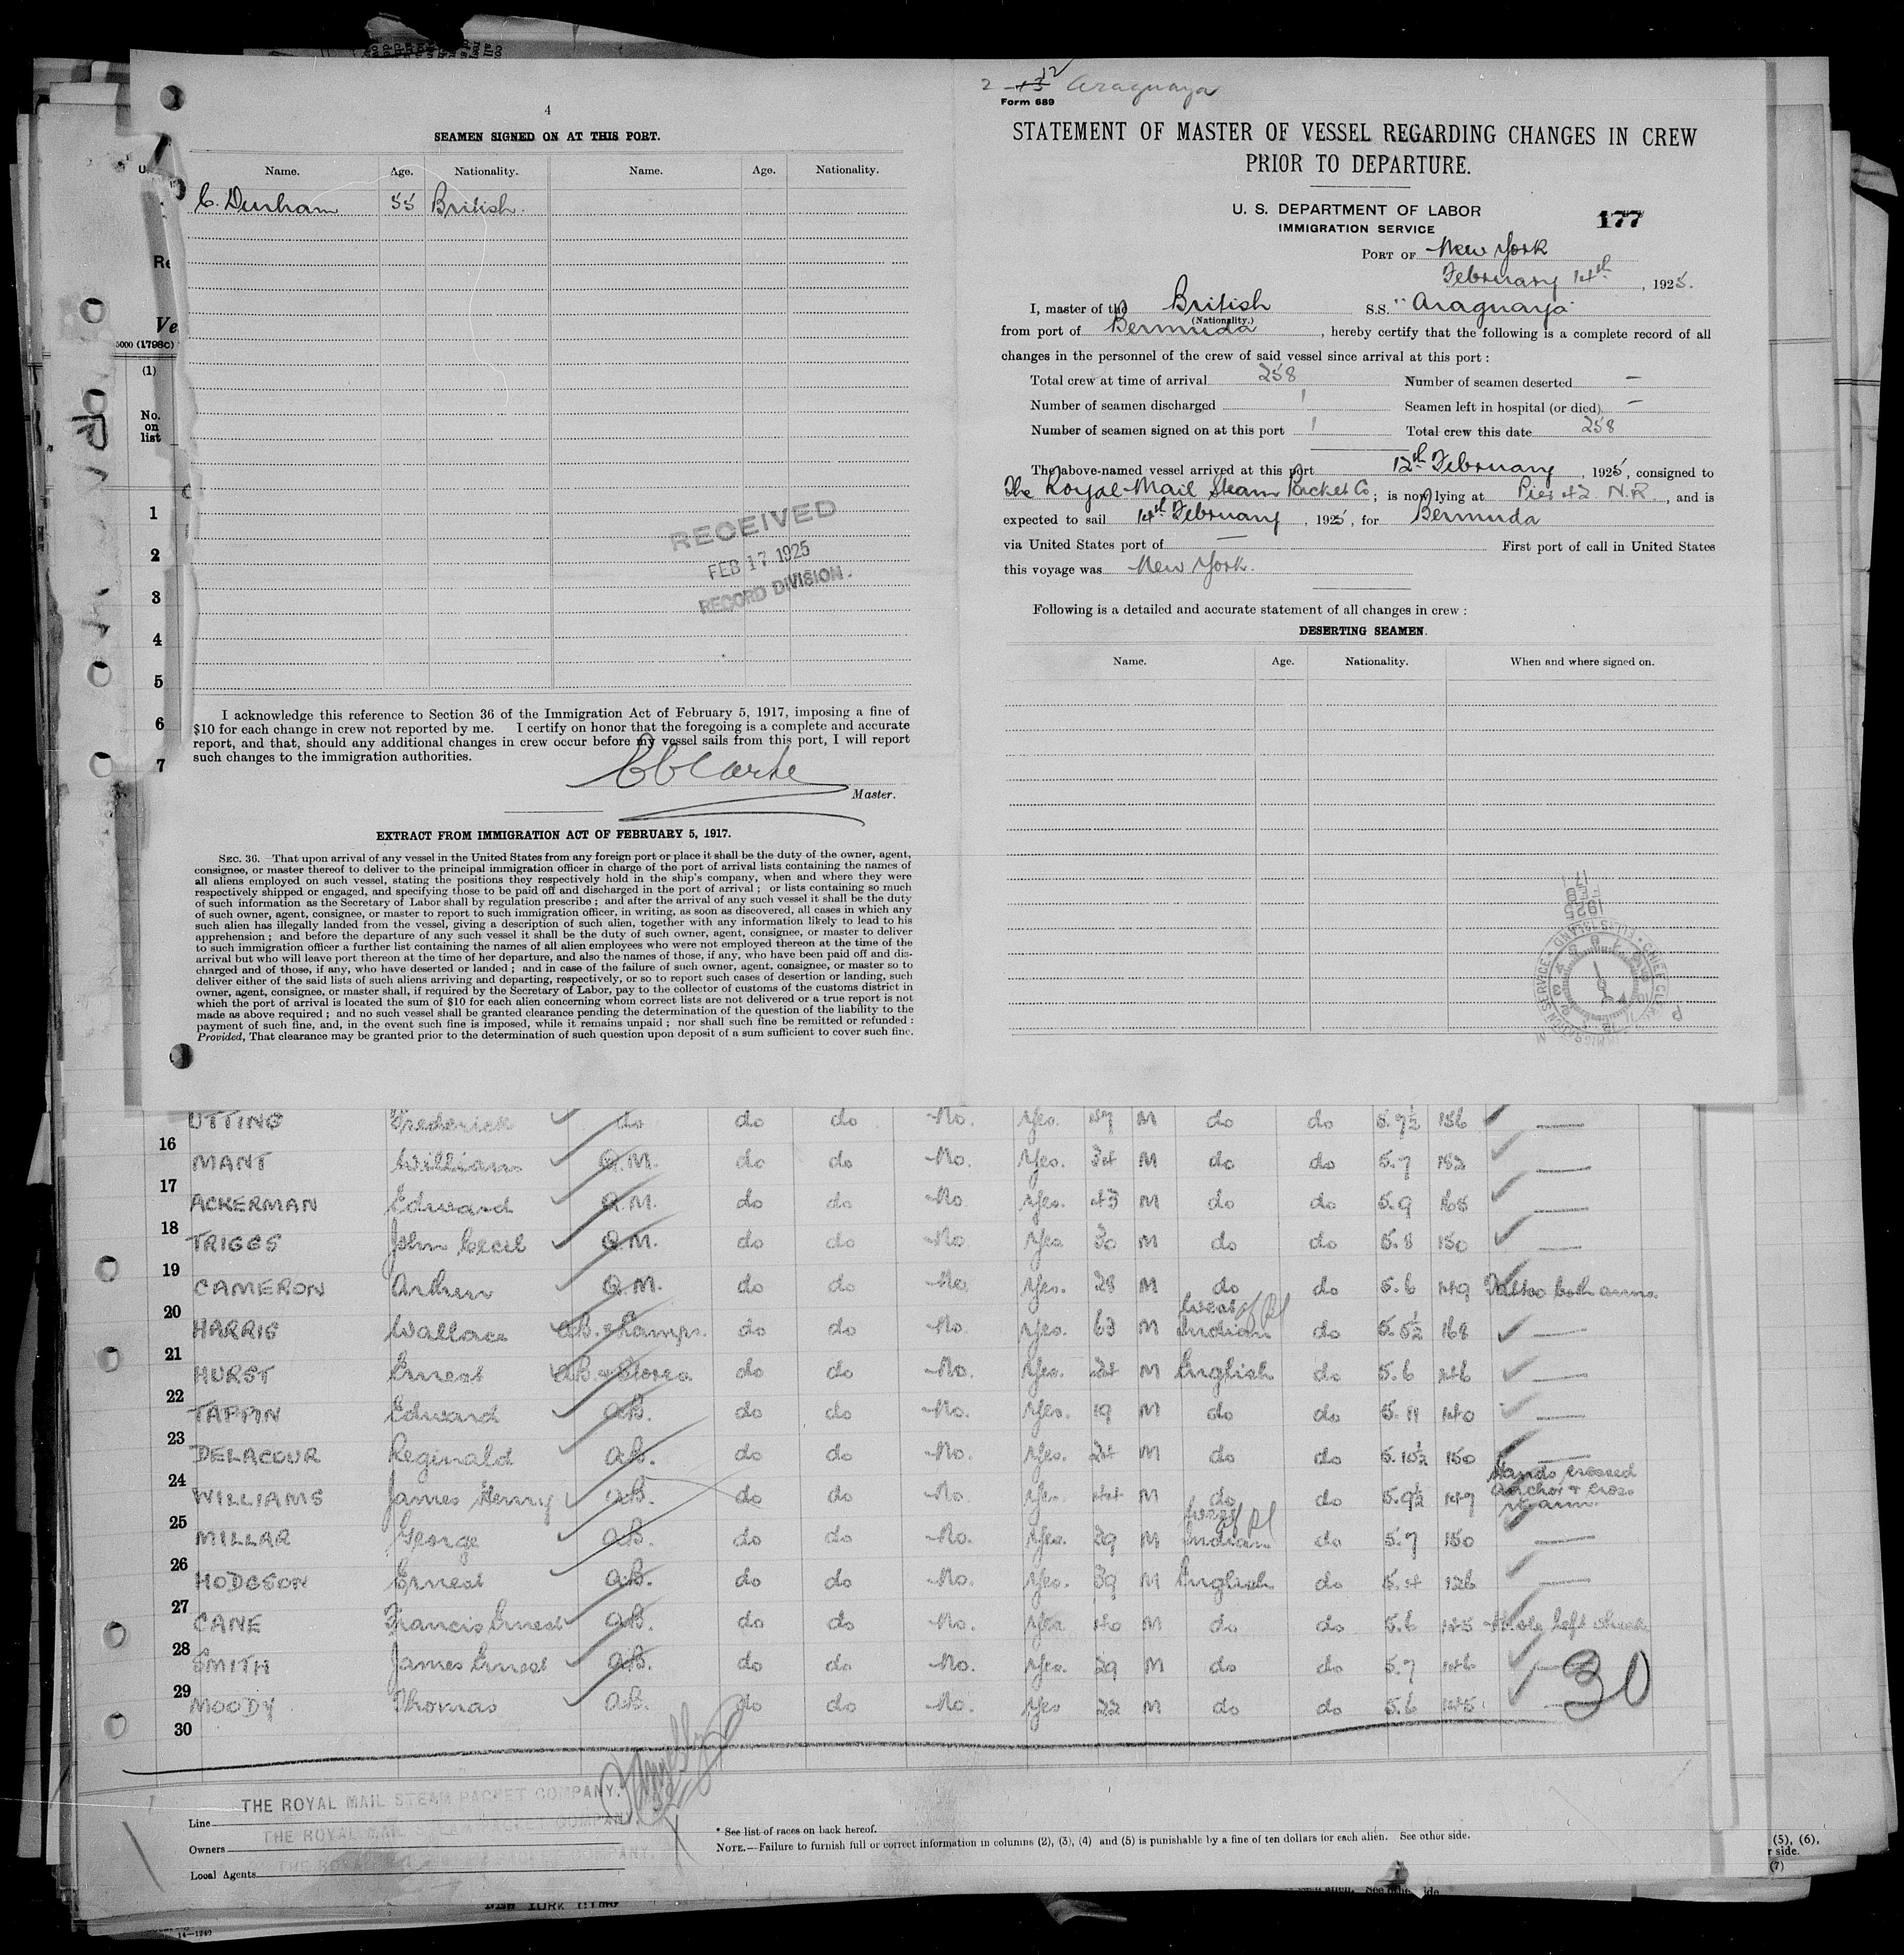 4
SEAMEN SIGNED ON AT THIS PORT.
Name. Age. Nationality. Name. Age. Nationality.
C. Durham 55 British.
RECEIVED
FEB 17 1925
RECORD DIVISION.
I acknowledge this reference to Section 36 of the Immigration Act of February 5, 1917, imposing a fine of
$10 for each change in crew not reported by me. I certify on honor that the foregoing is a complete and accurate
report, and that, should any additional changes in crew occur before my vessel sails from this port, I will report
such changes to the immigration authorities.
Master.
EXTRACT FROM IMMIGRATION ACT OF FEBRUARY 5, 1917.
SEC. 36. That upon arrival of any vessel in the United States from any foreign port or place it shall be the duty of the owner, agent,
consignee, or master thereof to deliver to the principal immigration officer in charge of the port of arrival lists containing the names of
all aliens employed on such vessel, stating the positions they respectively hold in the ship's company, when and where they were
respectively shipped or engaged, and specifying those to be paid off and discharged in the port of arrival; or lists containing so much
of such information as the Secretary of Labor shall by regulation prescribe; and after the arrival of any such vessel it shall be the duty
of such owner, agent, consignee, or master to report to such immigration officer, in writing, as soon as discovered, all cases in which any
such alien has illegally landed from the vessel, giving a description of such alien, together with any information likely to lead to his
apprehension; and before the departure of any such vessel it shall be the duty of such owner, agent, consignee, or master to deliver
to such immigration officer a further list containing the names of all alien employees who were not employed thereon at the time of the
arrival but who will leave port thereon at the time of her departure, and also the names of those, if any, who have been paid off and dis-
charged and of those, if any, who have deserted or landed; and in case of the failure of such owner, agent, consignee, or master so to
deliver either of the said lists of such aliens arriving and departing, respectively, or so to report such cases of desertion or landing, such
owner, agent, consignee, or master shall, if required by the Secretary of Labor, pay to the collector of customs of the customs district in
which the port of arrival is located the sum of $10 for each alien concerning whom correct lists are not delivered or a true report is not
made as above required; and no such vessel shall be granted clearance pending the determination of the question of the liability to the
payment of such fine, and, in the event such fine is imposed, while it remains unpaid; nor shall such fine be remitted or refunded:
Provided, That clearance may be granted prior to the determination of such question upon deposit of a sum sufficient to cover such fine.
2 - 13 12 Araguaya
Form 689
STATEMENT OF MASTER OF VESSEL REGARDING CHANGES IN CREW
PRIOR TO DEPARTURE.
U. S. DEPARTMENT OF LABOR
IMMIGRATION SERVICE
177
PORT OF New York
February 14th, 1925.
I, master of the British S.S. "Araguaya"
(Nationality.)
from port of Bermuda, hereby certify that the following is a complete record of all
changes in the personnel of the crew of said vessel since arrival at this port:
Total crew at time of arrival 258 Number of seamen deserted —
Number of seamen discharged 1 Seamen left in hospital (or died) —
Number of seamen signed on at this port 1 Total crew this date 258
The above-named vessel arrived at this port 12th February, 1925, consigned to
The Royal Mail Steam Packet Co; is now lying at Pier 42 N.R., and is
expected to sail 14th February, 1925, for Bermuda
via United States port of — First port of call in United States
this voyage was New York.
Following is a detailed and accurate statement of all changes in crew:
DESERTING SEAMEN.
Name. Age. Nationality. When and where signed on.
5000 (1798c)
(1)
No.
on
list
1
2
3
4
5
6
7
UTTING Frederick do do do No. Yes. 37 M do do 5.9½ 156 —
16 MANT William Q.M. do do No. Yes. 34 M do do 5.7 182 —
17 ACKERMAN Edward Q.M. do do No Yes. 43 M do do 5.9 165 —
18 TRIGGS John Cecil Q.M. do do No Yes 30 M do do 5.8 150 —
19 CAMERON Arthur Q.M. do do No. Yes. 28 M do do 5.6 149 Tattoo both arms.
20 HARRIS Wallace A.B. & Lamps. do do No. Yes. 63 M West Indian do 5.5½ 168 —
21 HURST Ernest A.B. & Stores do do No. Yes. 24 M English do 5.6 146 —
22 TAPPIN Edward A.B. do do No. Yes. 19 M do do 5.11 140 —
23 DELACOUR Reginald A.B. do do No. Yes. 24 M do do 5.10½ 150 —
24 WILLIAMS James Henry A.B. do do No. Yes. 44 M do do 5.9½ 147 Hands crossed anchor & cross rt arm.
25 MILLAR George A.B. do do No. Yes. 29 M West Indian do 5.7 150 —
26 HODGSON Ernest A.B. do do No. Yes. 39 M English do 5.4 126 —
27 CANE Francis Ernest A.B. do do No. Yes 40 M do do 5.6 145 Mole left cheek
28 SMITH James Ernest A.B. do do No. Yes. 29 M do do 5.7 146 —
29 MOODY Thomas A.B. do do No. Yes 22 M do do 5.6 145 —
30
30
THE ROYAL MAIL STEAM PACKET COMPANY.
Line
THE ROYAL MAIL STEAM PACKET COMPANY.
Owners
THE ROYAL MAIL STEAM PACKET COMPANY.
Local Agents
* See list of races on back hereof.
NOTE.—Failure to furnish full or correct information in columns (2), (3), (4) and (5) is punishable by a fine of ten dollars for each alien. See other side.
(5), (6),
r side.
(7)
NEW YORK CITY
14—1240